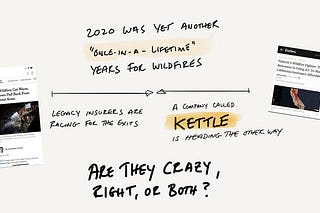 2020 WAS YET ANOTHER
"ONCE-IN-A-LIFETIME"
YEARS FOR WILDFIRES
LEGACY INSURERS ARE
RACING FOR THE EXITS
A COMPANY CALLED
KETTLE
IS HEADING THE OTHER WAY
ARE THEY CRAZY,
RIGHT, OR BOTH?
Forbes